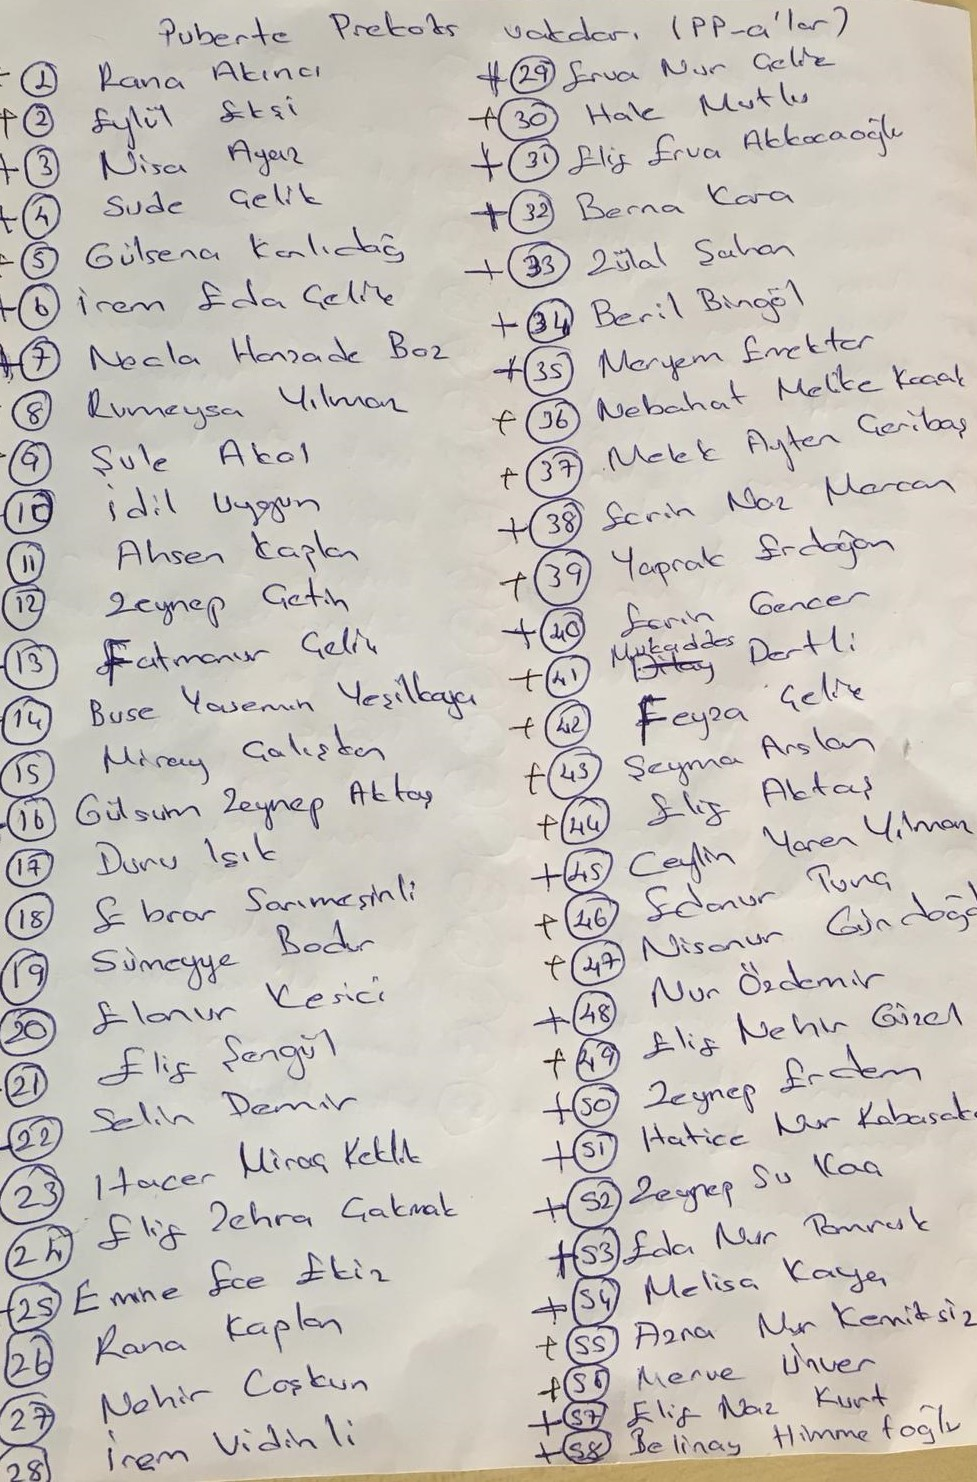 Puberte Prekoks vakaları (PP-a'lar)
- 1 Rana Akıncı
+ 2 Eylül Ekşi
+ 3 Nisa Ayaz
+ 4 Sude Çelik
+ 5 Gülsena Karlıdağ
+ 6 İrem Eda Çelik
+ 7 Necla Hanzade Boz
8 Rumeysa Yılmaz
9 Şule Akol
10 İdil Uygun
11 Ahsen Kaplan
12 Zeynep Çetin
13 Fatmanur Çelik
14 Buse Yasemin Yeşilkaya
15 Miray Çalışkan
16 Gülsüm Zeynep Aktaş
17 Duru Işık
18 Ebrar Sarımeşinli
19 Sümeyye Bodur
20 Elanur Kesici
21 Elif Şengül
22 Selin Demir
23 Hacer Miraç Keklik
24 Elif Zehra Çakmak
25 Emine Ece Ekiz
26 Rana Kaplan
27 Nehir Coşkun
28 İrem Vidinli
+ 29 Erva Nur Çelik
+ 30 Hale Mutlu
+ 31 Elif Erva Akkocaoğlu
+ 32 Berna Kara
+ 33 Zülal Şahan
+ 34 Beril Bingöl
+ 35 Meryem Emektar
+ 36 Nebahat Melike
+ 37 Melek Ayten Geribaş
+ 38 Esrin Naz Mercan
+ 39 Yaprak Erdoğan
+ 40 Esrin Gencer
+ 41 Mukaddes Dertli
+ 42 Feyza Çelik
+ 43 Şeyma Arslan
+ 44 Elif Aktaş
+ 45 Ceylin Yaren Yılmaz
+ 46 Edanur Tunç
+ 47 Nisanur Gündoğd
+ 48 Nur Özdemir
+ 49 Elif Nehir Güzel
+ 50 Zeynep Erdem
+ 51 Hatice Nur Kabasak
+ 52 Zeynep Su Koç
+ 53 Eda Nur Tomruk
+ 54 Melisa Kaya
+ 55 Azra Nur Kemiksiz
+ 56 Merve Ünver
+ 57 Elif Naz Kurt
+ 58 Belinay Himmetoğlu